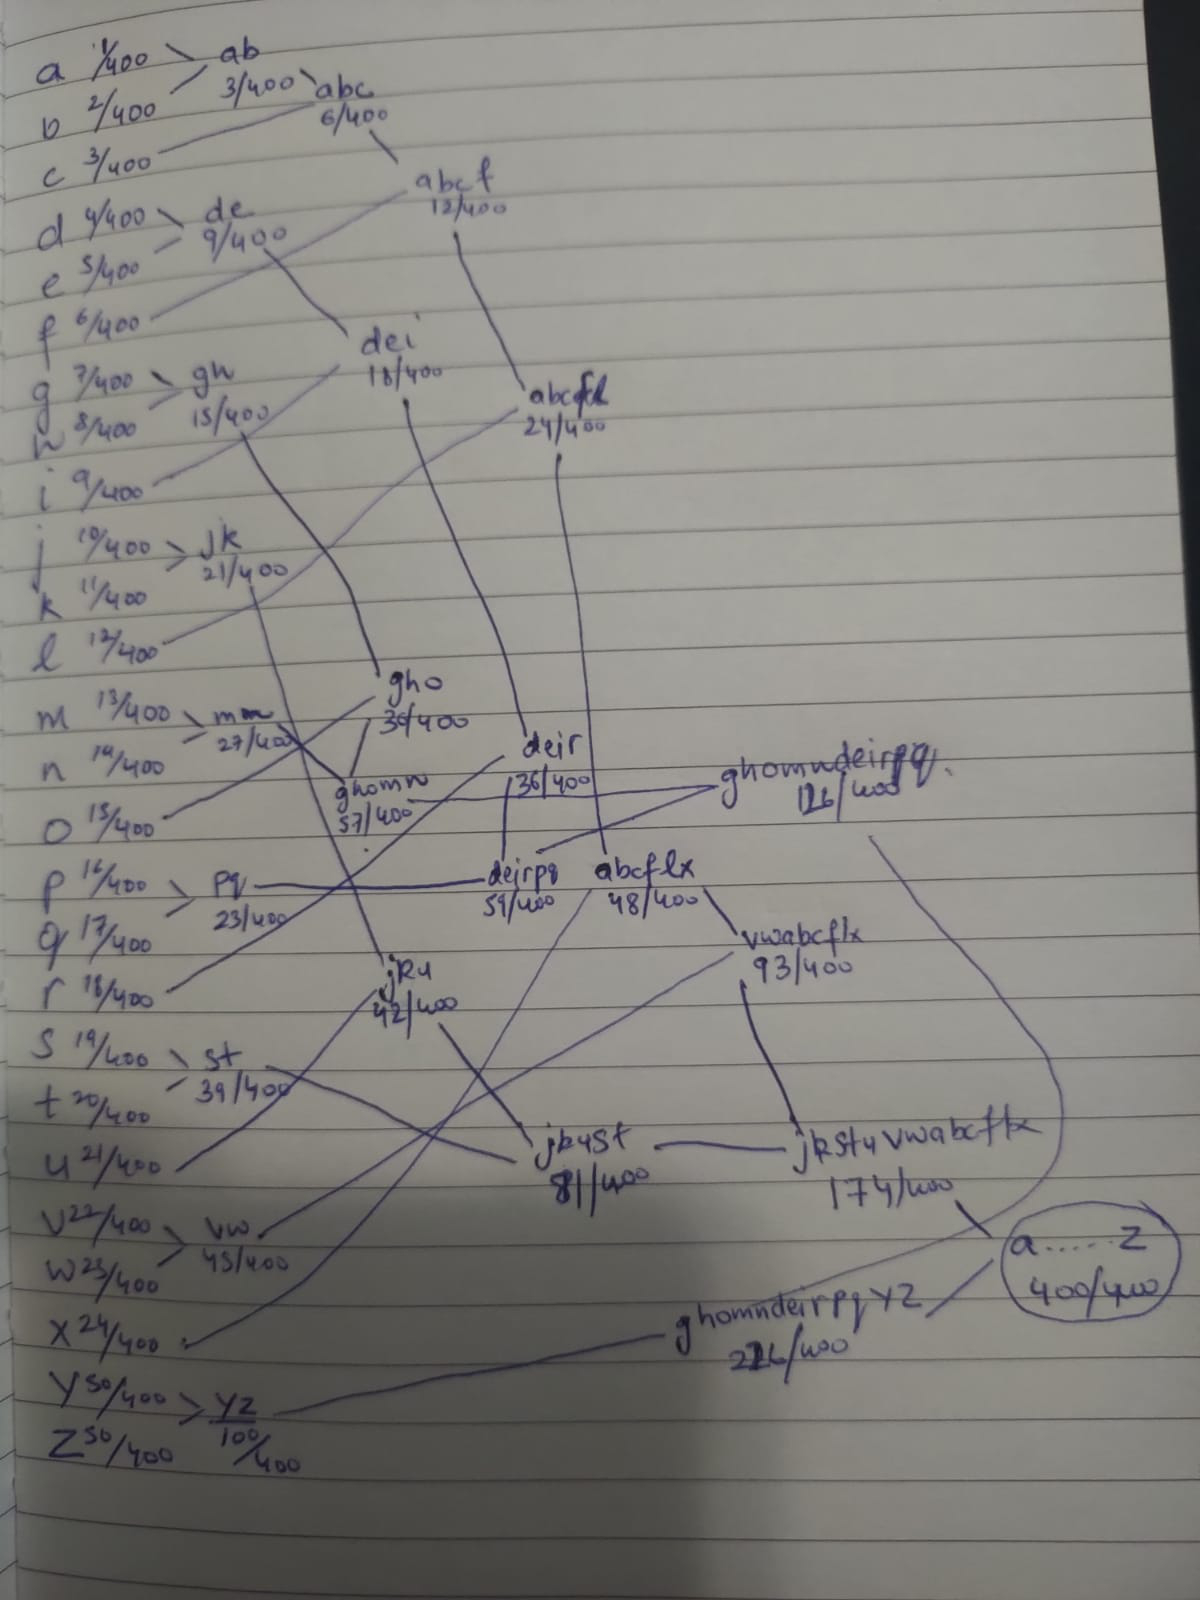 a 1/400 ab
3/400 abc
b 2/400 6/400
c 3/400
abcf
12/400
d 4/400 de
9/400
e 5/400
f 6/400
dei
18/400
g 7/400 gh
15/400
h 8/400
abcfl
24/400
i 9/400
j 10/400 jk
21/400
k 11/400
l 12/400
gho
30/400
m 13/400 mn
27/400
deir
36/400
n 14/400
ghomn
57/400
ghomndeirpq.
126/400
o 15/400
p 16/400 pq
23/400
deirpq
59/400
abcflx
48/400
q 17/400
vwabcflx
93/400
r 18/400
jku
42/400
s 19/400 st
39/400
t 20/400
jkust
81/400
jkstuvwabcflx
174/400
u 21/400
v 22/400 vw
45/400
w 23/400
a......z
400/400
x 24/400
ghomndeirpqyz
226/400
y 50/400 yz
100/400
z 50/400